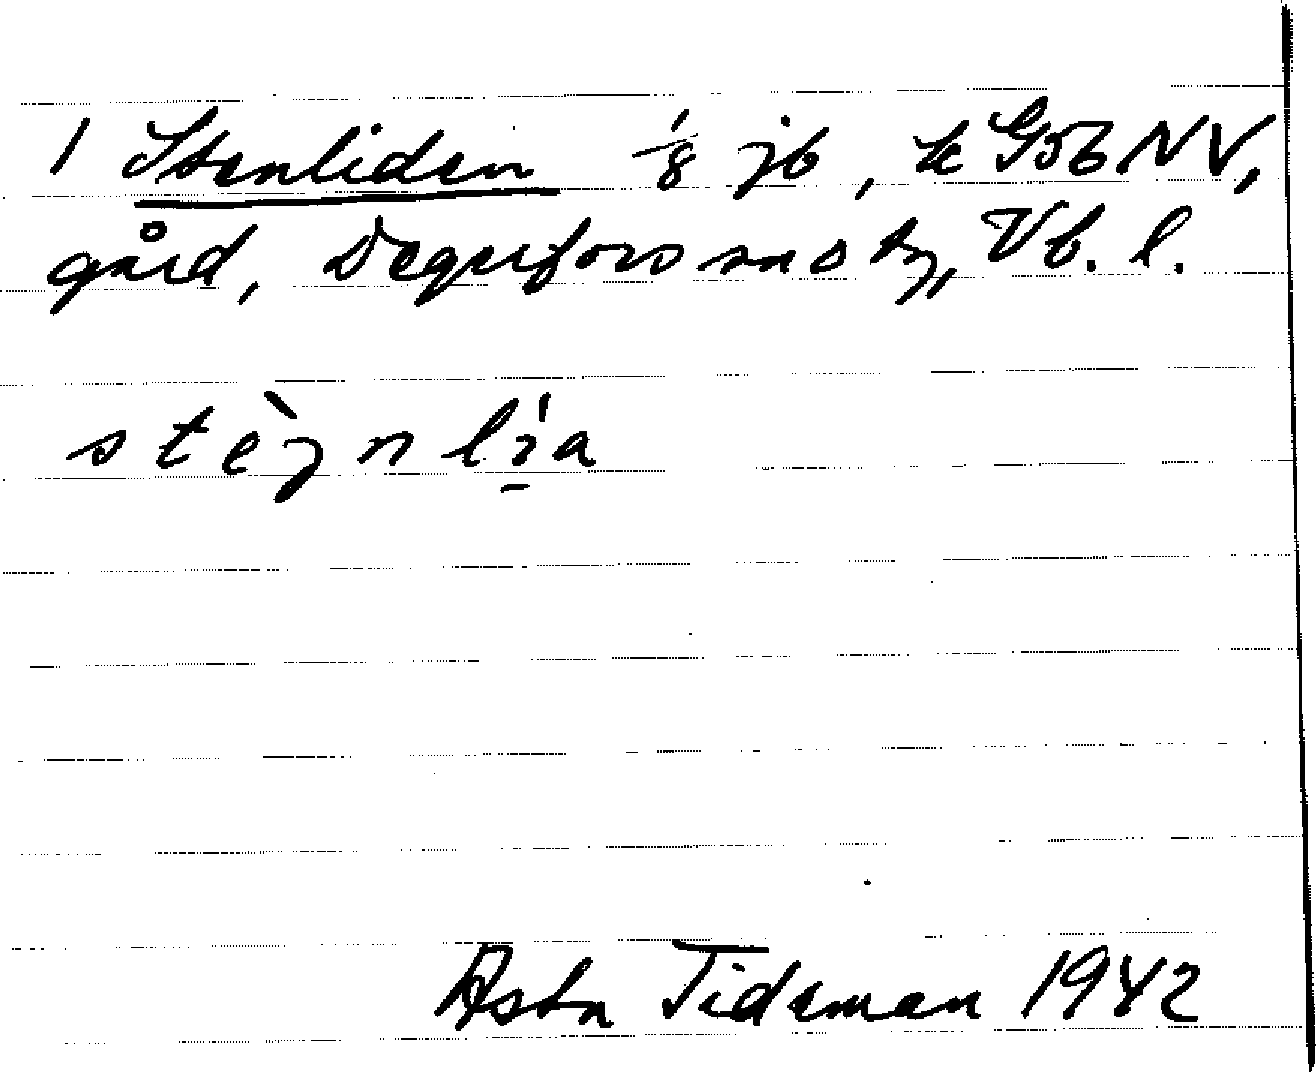 1 Stenliden 1/8 jb, k G56 NV,
gård, Degerfors sn o tg, Vb. l.
stèȷnlı̣́a
Asta Tideman 1942